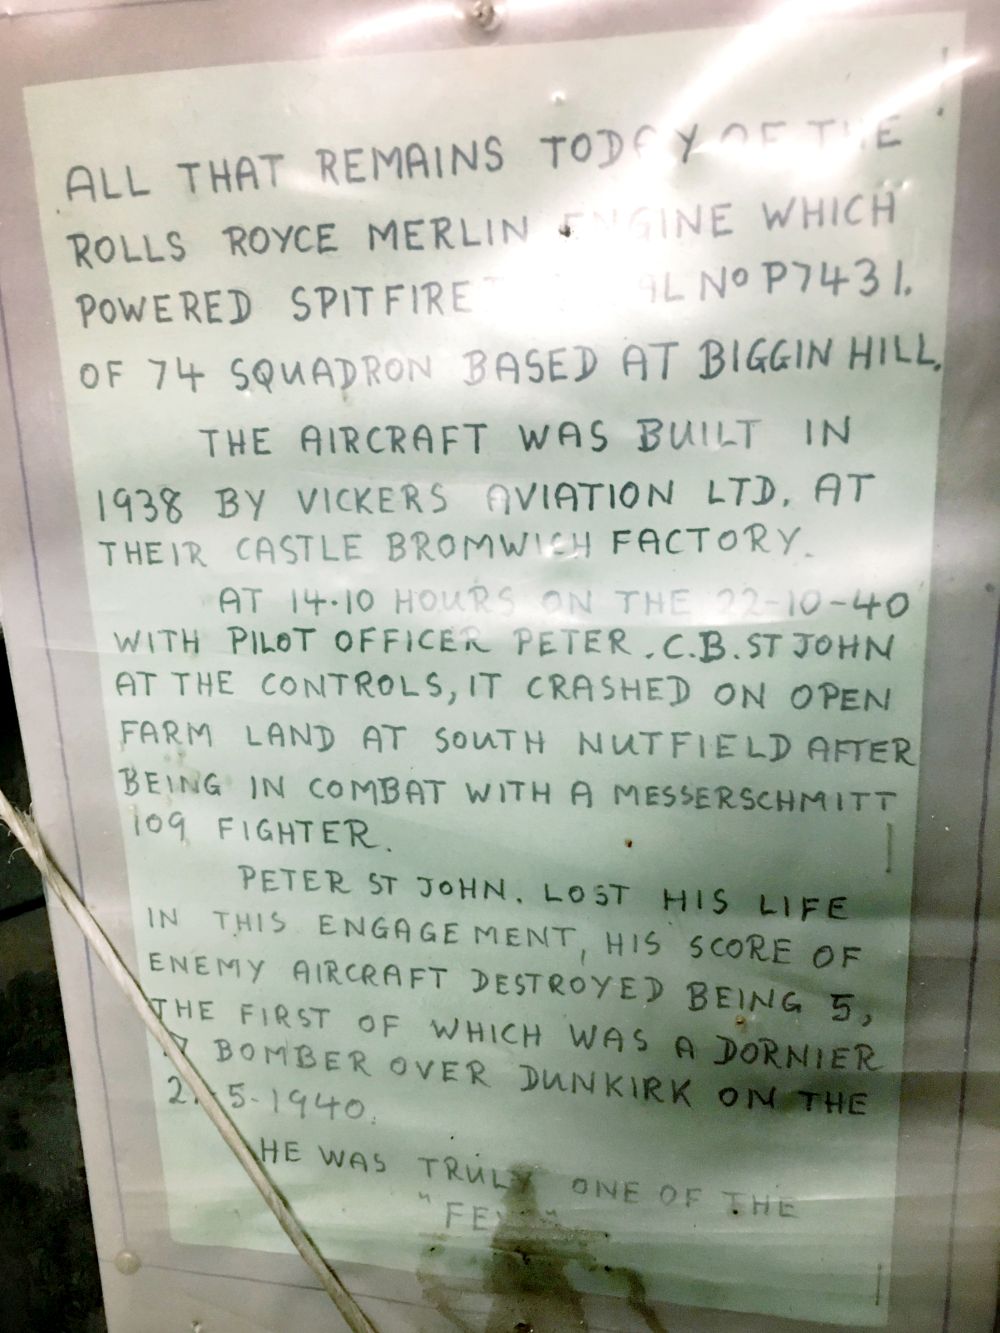 ALL THAT REMAINS TODAY OF THE
ROLLS ROYCE MERLIN ENGINE WHICH
POWERED SPITFIRE No P7431.
OF 74 SQUADRON BASED AT BIGGIN HILL.
THE AIRCRAFT WAS BUILT IN
1938 BY VICKERS AVIATION LTD. AT
THEIR CASTLE BROMWICH FACTORY.
AT 14.10 HOURS ON THE 22-10-40
WITH PILOT OFFICER PETER.C.B.ST JOHN
AT THE CONTROLS, IT CRASHED ON OPEN
FARM LAND AT SOUTH NUTFIELD AFTER
BEING IN COMBAT WITH A MESSERSCHMITT
109 FIGHTER.
PETER ST JOHN. LOST HIS LIFE
IN THIS ENGAGEMENT, HIS SCORE OF
ENEMY AIRCRAFT DESTROYED BEING 5,
THE FIRST OF WHICH WAS A DORNIER
BOMBER OVER DUNKIRK ON THE
5-1940.
HE WAS TRULY ONE OF THE
"FEW"